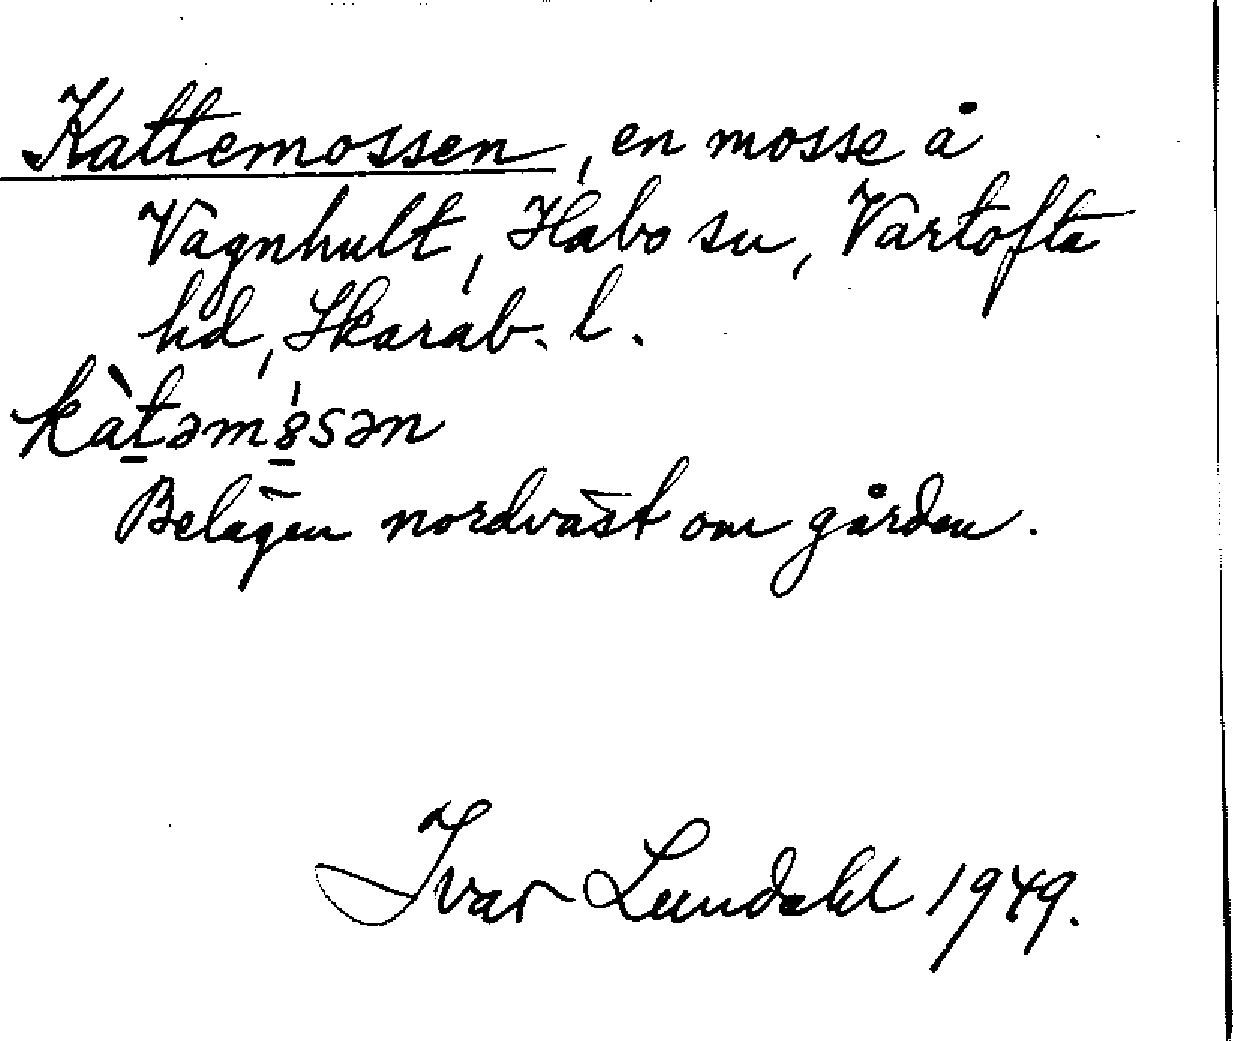 Kattemossen, en mosse å
Vagnhult, Habo sn, Vartofta
hd, Skarab. l.
kàt̲əm8̲́sən
Belägen nordväst om gården.
Ivar Lundahl 1949.